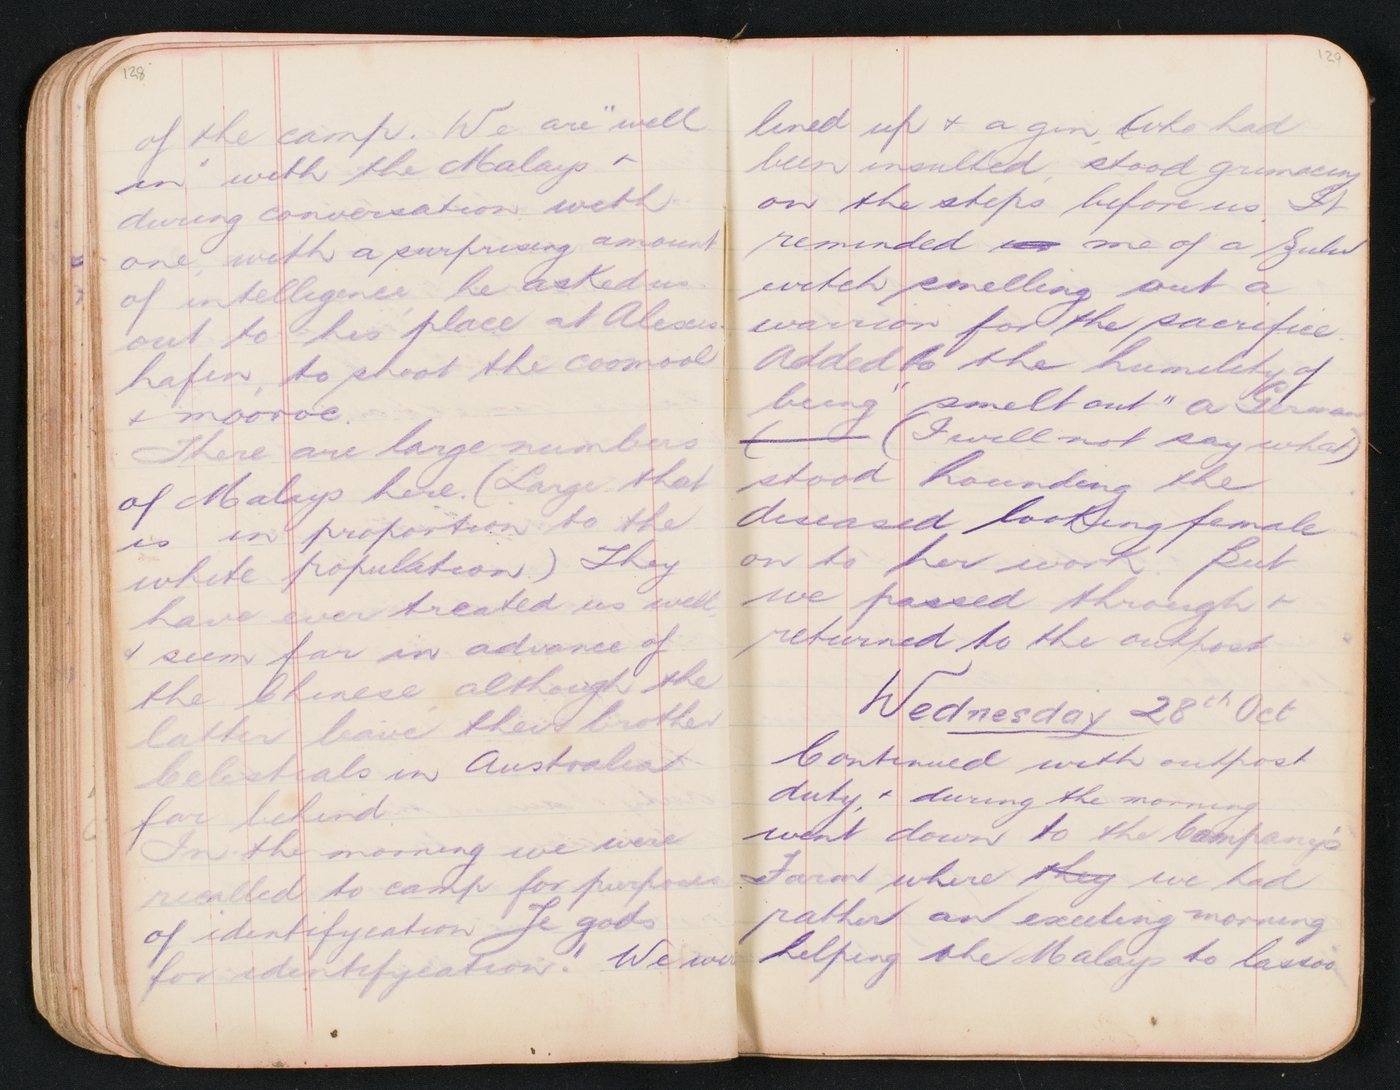 128
of the camp. We are "well
in" with the Malays +
during conversation with
one, with a surprising amount
of intelligence, he asked us
out to his place at Alexis-
hafen, to shoot the coomool
+ mooroc.
There are large numbers
of Malays here. (Large that
is in proportion to the
white population.) They
have ever treated us well
+ seem far in advance of
the Chinese, although the
latter leave their brother
Celestials in Australia
far behind
In the morning we were
recalled to camp for purposes
of identifycation Ye gods
for identifycation! We were
129
lined up + a gin, (who had
been insulted, stood grimacing
on the steps before us. It
reminded us me of a Zulu
witch smelling out a
warrior for the sacrifice.
Added to the humility of
being "smelt out" a German
(I will not say what)
stood hounding the
diseased looking female
on to her work. But
we passed through +
returned to the outpost
Wednesday 28th Oct
Continued with outpost
duty, + during the morning
went down to the Company's
Farm where they we had
rather an exceting morning
helping the Malays to lassoo